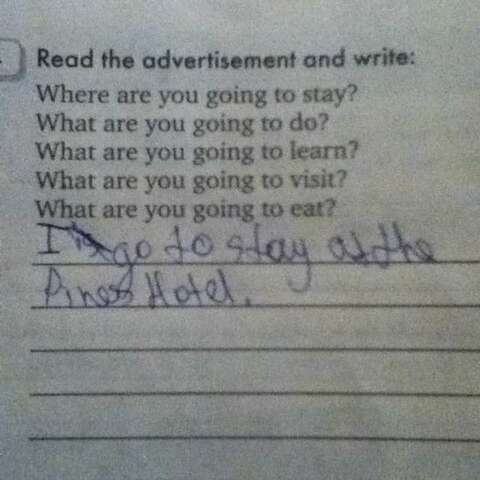 Read the advertisement and write:
Where are you going to stay?
What are you going to do?
What are you going to learn?
What are you going to visit?
What are you going to eat?
I go to stay at the
Pines Hotel.